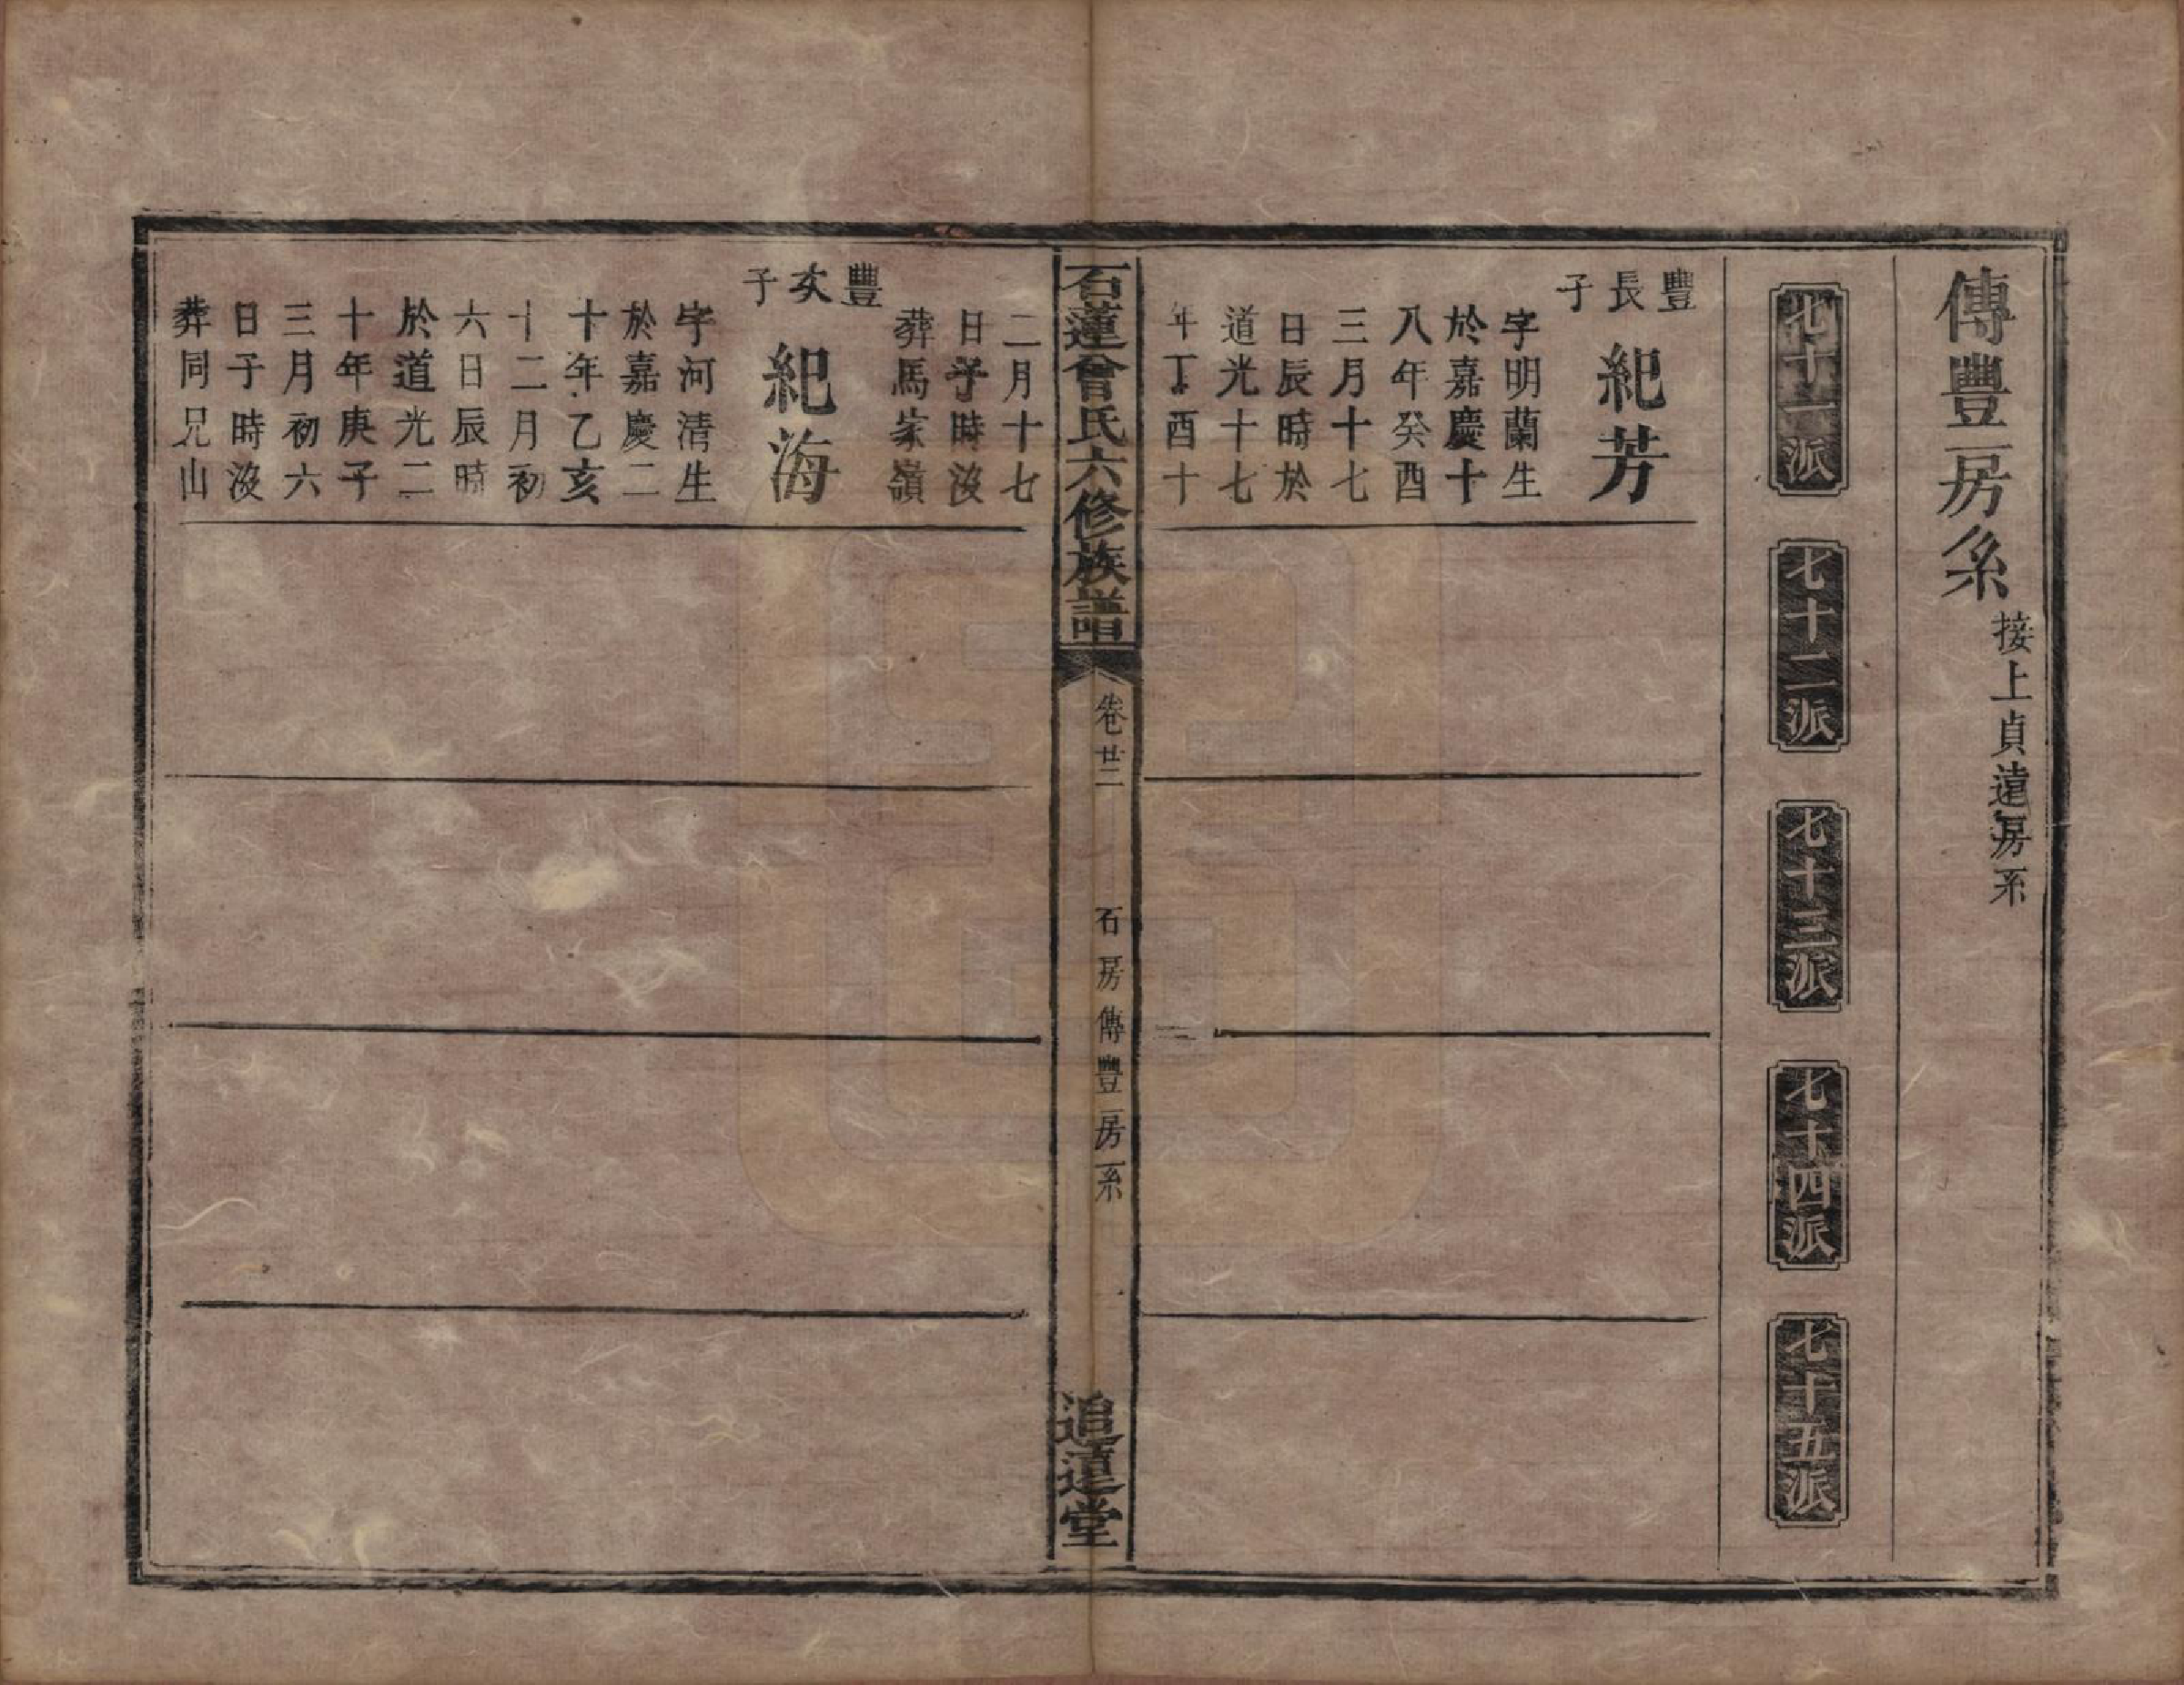 傳豐房系 接上貞遠房系
七十一派
七十二派
七十三派
七十四派
七十五派
豐長子
紀芳
字明蘭生
於嘉慶十
八年癸酉
三月十七
日辰時於
道光十七
年丁酉十
石蓮曾氏六修族譜
卷廿二
石房傳豐房系
一
追遠堂
二月十七
日子時沒
葬馬家嶺
豐次子
紀海
字河清生
於嘉慶二
十年乙亥
十二月初
六日辰時
於道光二
十年庚子
三月初六
日子時沒
葬同兄山